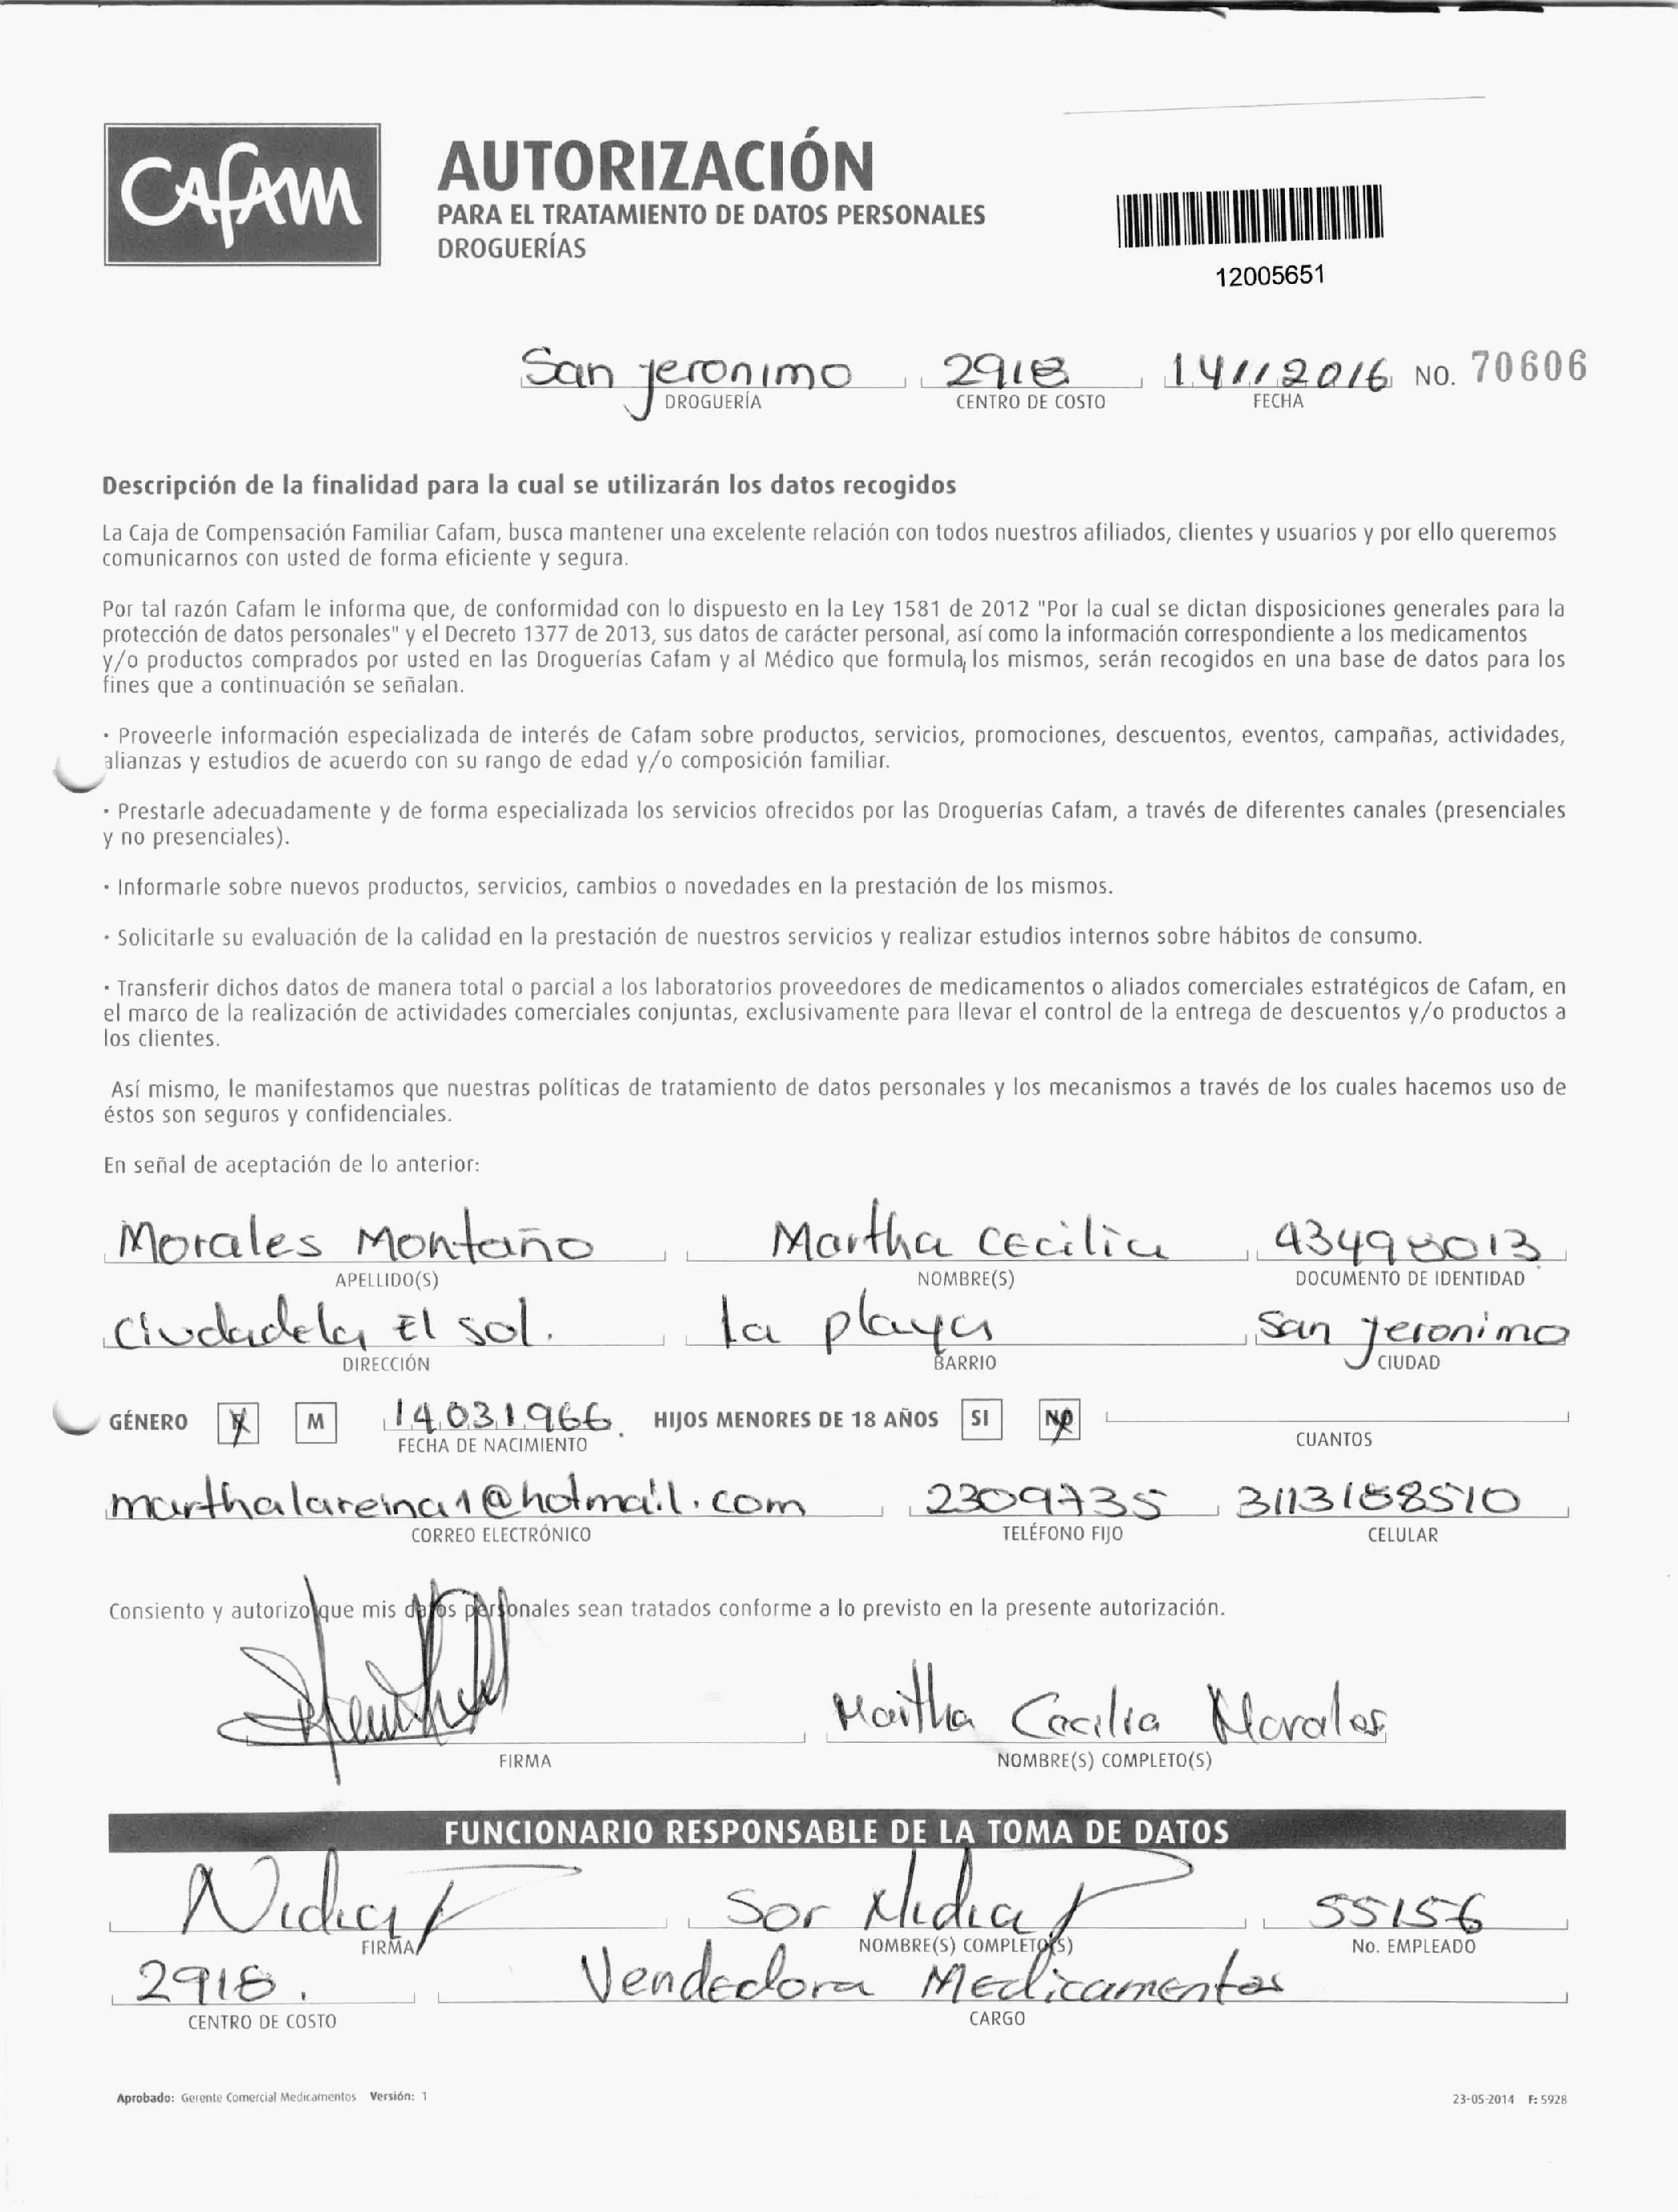 CAFAM
AUTORIZACIÓN
PARA EL TRATAMIENTO DE DATOS PERSONALES
DROGUERÍAS
12005651
San jeronimo 2918 14112016 NO. 70606
DROGUERÍA CENTRO DE COSTO FECHA
Descripción de la finalidad para la cual se utilizarán los datos recogidos
La Caja de Compensación Familiar Cafam, busca mantener una excelente relación con todos nuestros afiliados, clientes y usuarios y por ello queremos
comunicarnos con usted de forma eficiente y segura.
Por tal razón Cafam le informa que, de conformidad con lo dispuesto en la Ley 1581 de 2012 "Por la cual se dictan disposiciones generales para la
protección de datos personales" y el Decreto 1377 de 2013, sus datos de carácter personal, así como la información correspondiente a los medicamentos
y/o productos comprados por usted en las Droguerías Cafam y al Médico que formula, los mismos, serán recogidos en una base de datos para los
fines que a continuación se señalan.
· Proveerle información especializada de interés de Cafam sobre productos, servicios, promociones, descuentos, eventos, campañas, actividades,
alianzas y estudios de acuerdo con su rango de edad y/o composición familiar.
· Prestarle adecuadamente y de forma especializada los servicios ofrecidos por las Droguerías Cafam, a través de diferentes canales (presenciales
y no presenciales).
· Informarle sobre nuevos productos, servicios, cambios o novedades en la prestación de los mismos.
· Solicitarle su evaluación de la calidad en la prestación de nuestros servicios y realizar estudios internos sobre hábitos de consumo.
· Transferir dichos datos de manera total o parcial a los laboratorios proveedores de medicamentos o aliados comerciales estratégicos de Cafam, en
el marco de la realización de actividades comerciales conjuntas, exclusivamente para llevar el control de la entrega de descuentos y/o productos a
los clientes.
Así mismo, le manifestamos que nuestras políticas de tratamiento de datos personales y los mecanismos a través de los cuales hacemos uso de
éstos son seguros y confidenciales.
En señal de aceptación de lo anterior:
Morales Montaño Martha Cecilia 43498013
APELLIDO(S) NOMBRE(S) DOCUMENTO DE IDENTIDAD
Ciudadela El sol. la playa San jeronimo
DIRECCIÓN BARRIO CIUDAD
GÉNERO M 14031966. HIJOS MENORES DE 18 AÑOS SI NO
FECHA DE NACIMIENTO CUANTOS
marthalareina1@hotmail.com 2309735 3113188510
CORREO ELECTRÓNICO TELÉFONO FIJO CELULAR
Consiento y autorizo que mis datos personales sean tratados conforme a lo previsto en la presente autorización.
Martha Cecilia Morales
FIRMA NOMBRE(S) COMPLETO(S)
FUNCIONARIO RESPONSABLE DE LA TOMA DE DATOS
Nidia Sor Nidia 55156
FIRMA NOMBRE(S) COMPLETO(S) No. EMPLEADO
2918. Vendedora Medicamentos
CENTRO DE COSTO CARGO
Aprobado: Gerente Comercial Medicamentos Versión: 1 23-05-2014 F: 5928